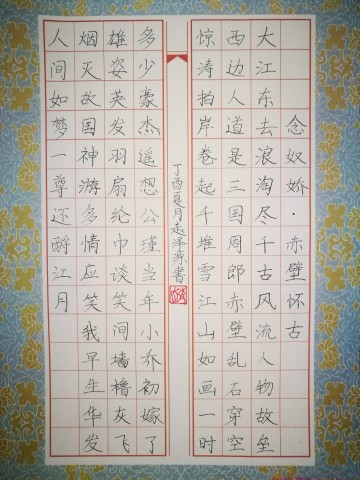 念奴娇·赤壁怀古
大江东去浪淘尽千古风流人物故垒
西边人道是三国周郎赤壁乱石穿空
惊涛拍岸卷起千堆雪江山如画一时
多少豪杰遥想公瑾当年小乔初嫁了
雄姿英发羽扇纶巾谈笑间墙橹灰飞
烟灭故国神游多情应笑我早生华发
人间如梦一尊还酹江月
丁酉夏月